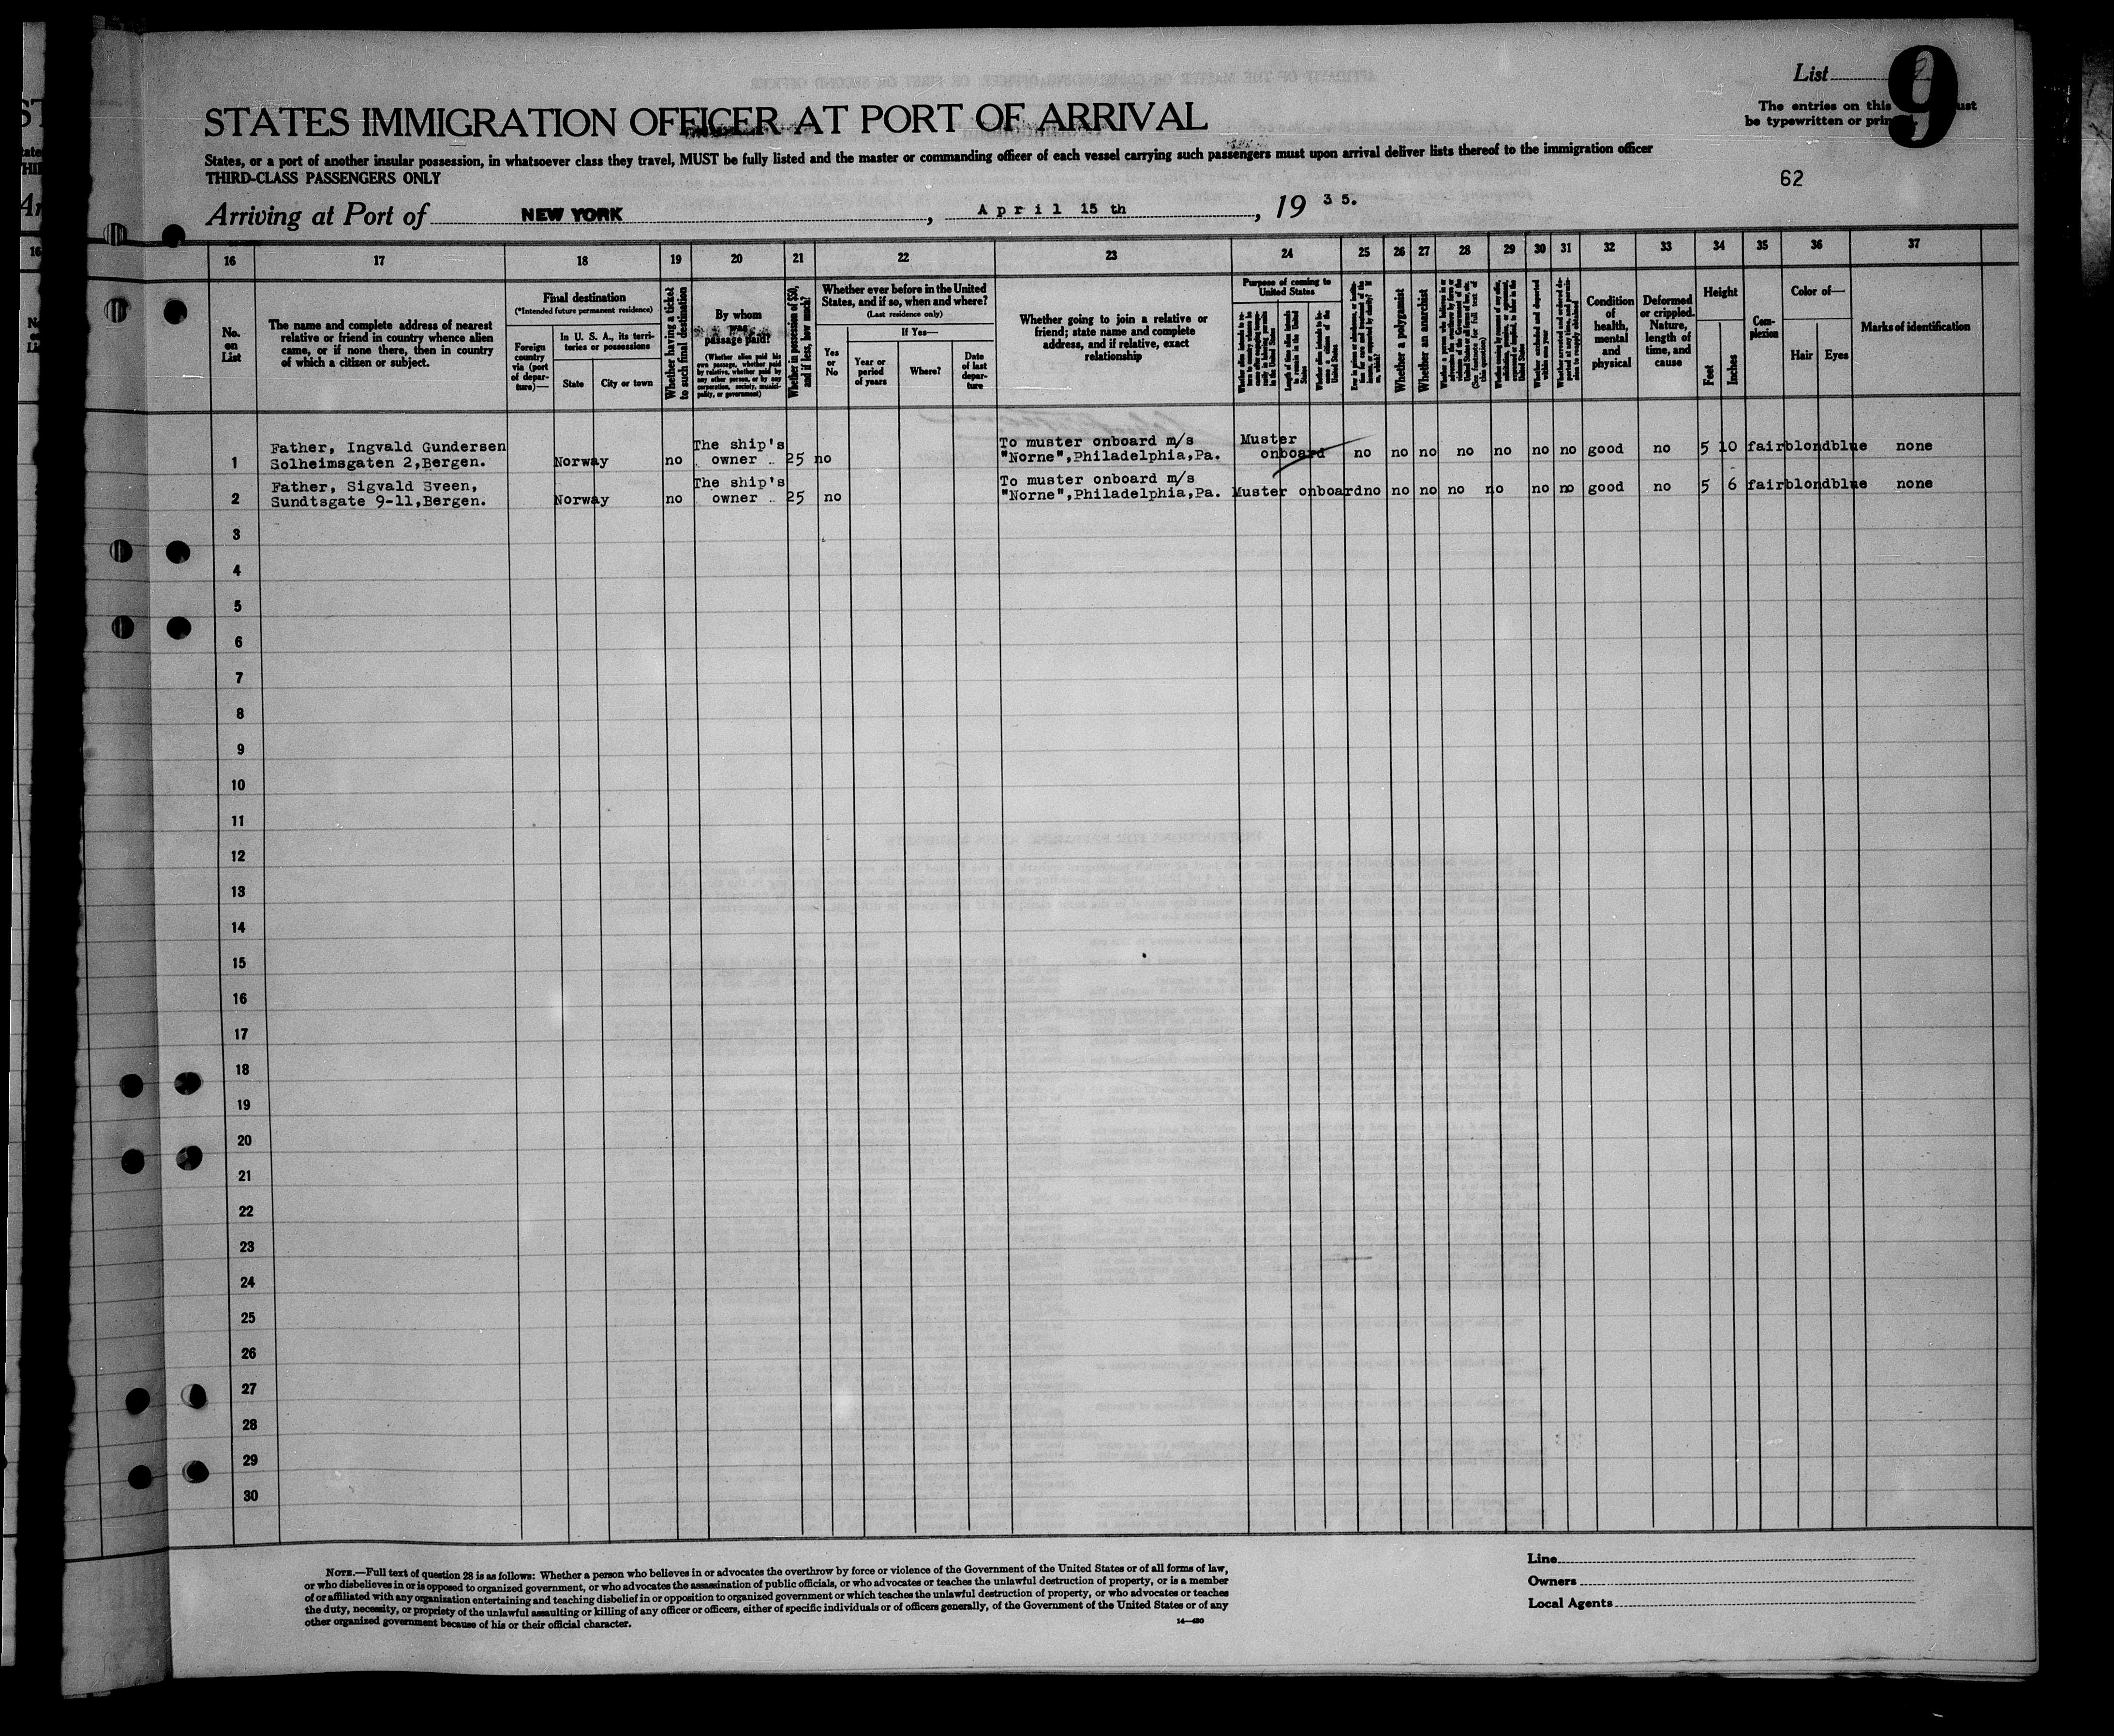 List
9
The entries on this
be typewritten or
STATES IMMIGRATION OFFICER AT PORT OF ARRIVAL
States, or a port of another insular possession, in whatsoever class they travel, MUST be fully listed and the master or commanding officer of each vessel carrying such passengers must upon arrival deliver lists thereof to the immigration officer
THIRD-CLASS PASSENGERS ONLY
62
Arriving at Port of NEW YORK, April 15 th, 19 35.
16 17 18 19 20 21 22 23 24 25 26 27 28 29 30 31 32 33 34 35 36 37
No.
on
List
The name and complete address of nearest
relative or friend in country whence alien
came, or if none there, then in country
of which a citizen or subject.
Final destination
(*Intended future permanent residence)
Foreign
country
via (port
of depar-
ture)—
In U. S. A., its terri-
tories or possessions
State
City or town
Whether having a ticket
to such final destination
By whom
was
passage paid?
(Whether alien paid his
own passage, whether paid
by relative, whether paid by
any other person, or by any
corporation, society, munici-
pality, or government)
Whether in possession of $50,
and if less, how much?
Whether ever before in the United
States, and if so, when and where?
(Last residence only)
Yes
or
No
If Yes—
Year or
period
of years
Where?
Date
of last
depar-
ture
Whether going to join a relative or
friend; state name and complete
address, and if relative, exact
relationship
Purpose of coming to
United States
Length of time alien intends
to remain in the United
States
Whether a polygamist
Whether an anarchist
Whether excluded and deported
within one year
Condition
of
health,
mental
and
physical
Deformed
or crippled.
Nature,
length of
time, and
cause
Height
Feet
Inches
Com-
plexion
Color of—
Hair
Eyes
Marks of identification
1 Father, Ingvald Gundersen
Solheimsgaten 2,Bergen. Norway no The ship's
owner 25 no To muster onboard m/s
"Norne",Philadelphia,Pa. Muster
onboard no no no no no no no good no 5 10 fair blond blue none
2 Father, Sigvald Sveen,
Sundtsgate 9-11,Bergen. Norway no The ship's
owner 25 no To muster onboard m/s
"Norne",Philadelphia,Pa. Muster onboard no no no no no no no good no 5 6 fair blond blue none
3
4
5
6
7
8
9
10
11
12
13
14
15
16
17
18
19
20
21
22
23
24
25
26
27
28
29
30
NOTE.—Full text of question 28 is as follows: Whether a person who believes in or advocates the overthrow by force or violence of the Government of the United States or of all forms of law,
or who disbelieves in or is opposed to organized government, or who advocates the assassination of public officials, or who advocates or teaches the unlawful destruction of property, or is a member
of or affiliated with any organization entertaining and teaching disbelief in or opposition to organized government or which teaches the unlawful destruction of property, or who advocates or teaches
the duty, necessity, or propriety of the unlawful assaulting or killing of any officer or officers, either of specific individuals or of officers generally, of the Government of the United States or of any
other organized government because of his or their official character.
14—480
Line
Owners
Local Agents